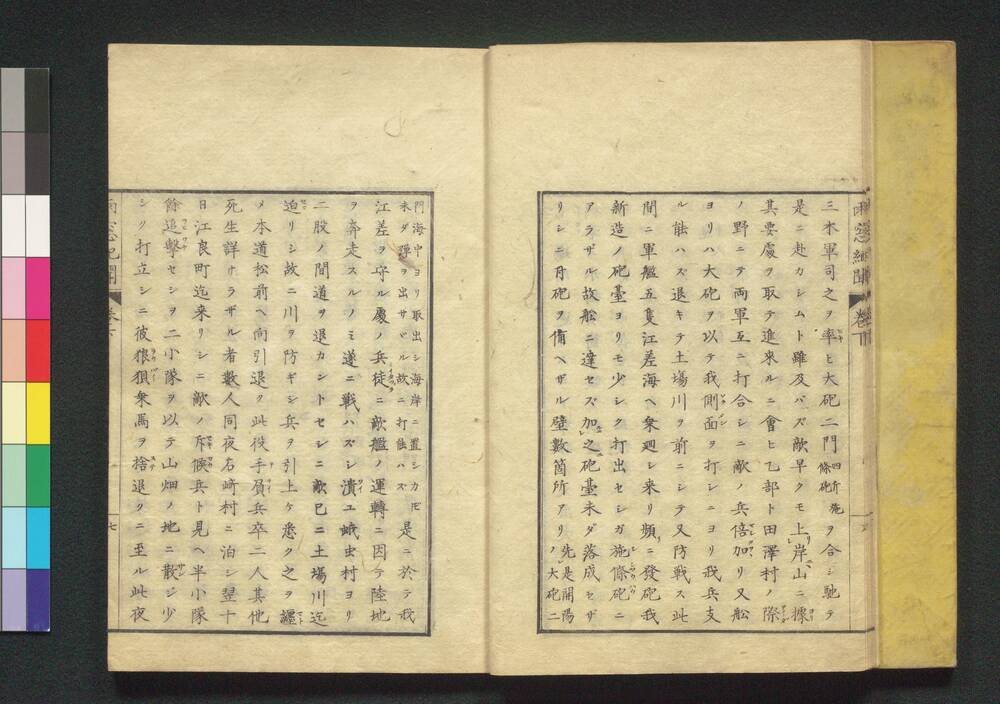 雨窓紀聞 巻下
三木軍司之ヲ率ヒ大砲二門四斤施條砲ヲ合シ馳テ
是ニ赴カシムト雖及バズ敵早クモ上岸山ニ據リ
其要處ヲ取テ進來ルニ會ヒ乙部ト田澤村ノ際
ノ野ニテ両軍互ニ打合シニ敵ノ兵倍加リ又舩
ヨリハ大砲ヲ以テ我側面ヲ打シニヨリ我兵支
ル能ハズ退キテ土場川ヲ前ニシテ又防戦ス此
間ニ軍艦五隻江差海ヘ乗廻シ来リ頻ニ發砲我
新造ノ砲臺ヨリモ少シク打出セシガ施條砲ニ
アラザル故舩ニ達セズ加之砲臺未ダ落成セザ
リシニ舟砲ヲ備ヘザル壁數箇所アリ先是開陽ノ大砲二
門海中ヨリ取出シ海岸ニ置シカ𪜈未ダ弾ヲ出サヾル故ニ打能ハズ是ニ於テ我
江差ヲ守ル處ノ兵徒ニ敵艦ノ運轉ニ因テ陸地
ヲ奔走スルノミ遂ニ戦ハズシ潰ユ蛾虫村ヨリ
二股ノ間道ヲ退カントセシニ敵已ニ土場川迄
迫リシ故ニ川ヲ防ギシ兵ヲ引上ケ悉ク之ヲ纏
メ本道松前ヘ向引退ク此役手負兵卒二人其他
死生詳ナラザル者數人同夜石崎村ニ泊シ翌十
日江良町迄来リシニ敵ノ斥候兵ト見ヘ半小隊
餘追撃セシヲ二小隊ヲ以テ山畑ノ地ニ散ジ少
シク打立シニ彼狼狽乗馬ヲ捨退クニ至ル此夜
雨窓紀聞 巻下 七